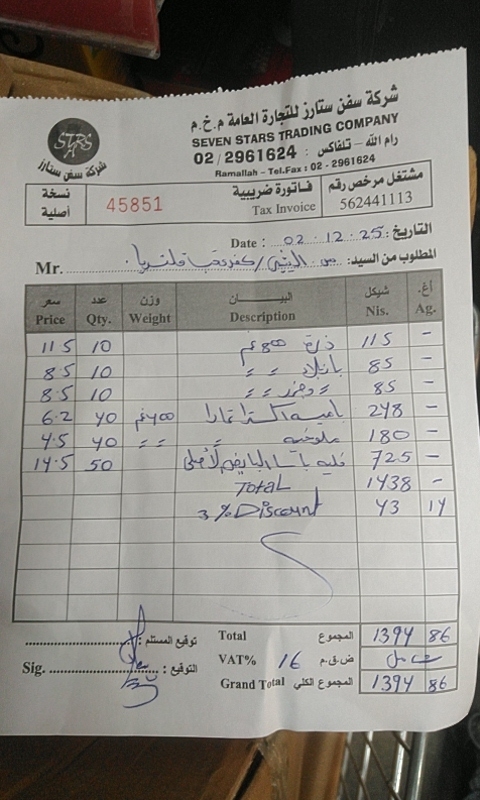 شركة سفن ستارز للتجارة العامة م.خ.م
SEVEN STARS TRADING COMPANY
رام الله - تلفاكس : 02/2961624
Ramallah - Tel.Fax : 02 - 2961624
STRS
شركة سفن ستارز
نسخة أصلية
45851
فاتورة ضريبية
Tax Invoice
مشتغل مرخص رقم
562441113
Date : 02.12.25 التاريخ:
Mr. المطلوب من السيد:
سعر عدد وزن البيـــــان شيكل أغ.
Price Qty. Weight Description Nis. Ag.
11.5 10 ذرة 800 غم 115 -
8.5 10 بازيلاء = = 85 -
8.5 10 = = = 85 -
6.2 40 400 غم باميه اكسترا 248 -
4.5 40 = = ملوخيه 180 -
14.5 50 725 -
Total 1438 -
3% Discount 43 14
توقيع المستلم : Total المجموع 1394 86
Sig. التوقيع : VAT% 16 ض.ق.م شامل
Grand Total المجموع الكلي 1394 86